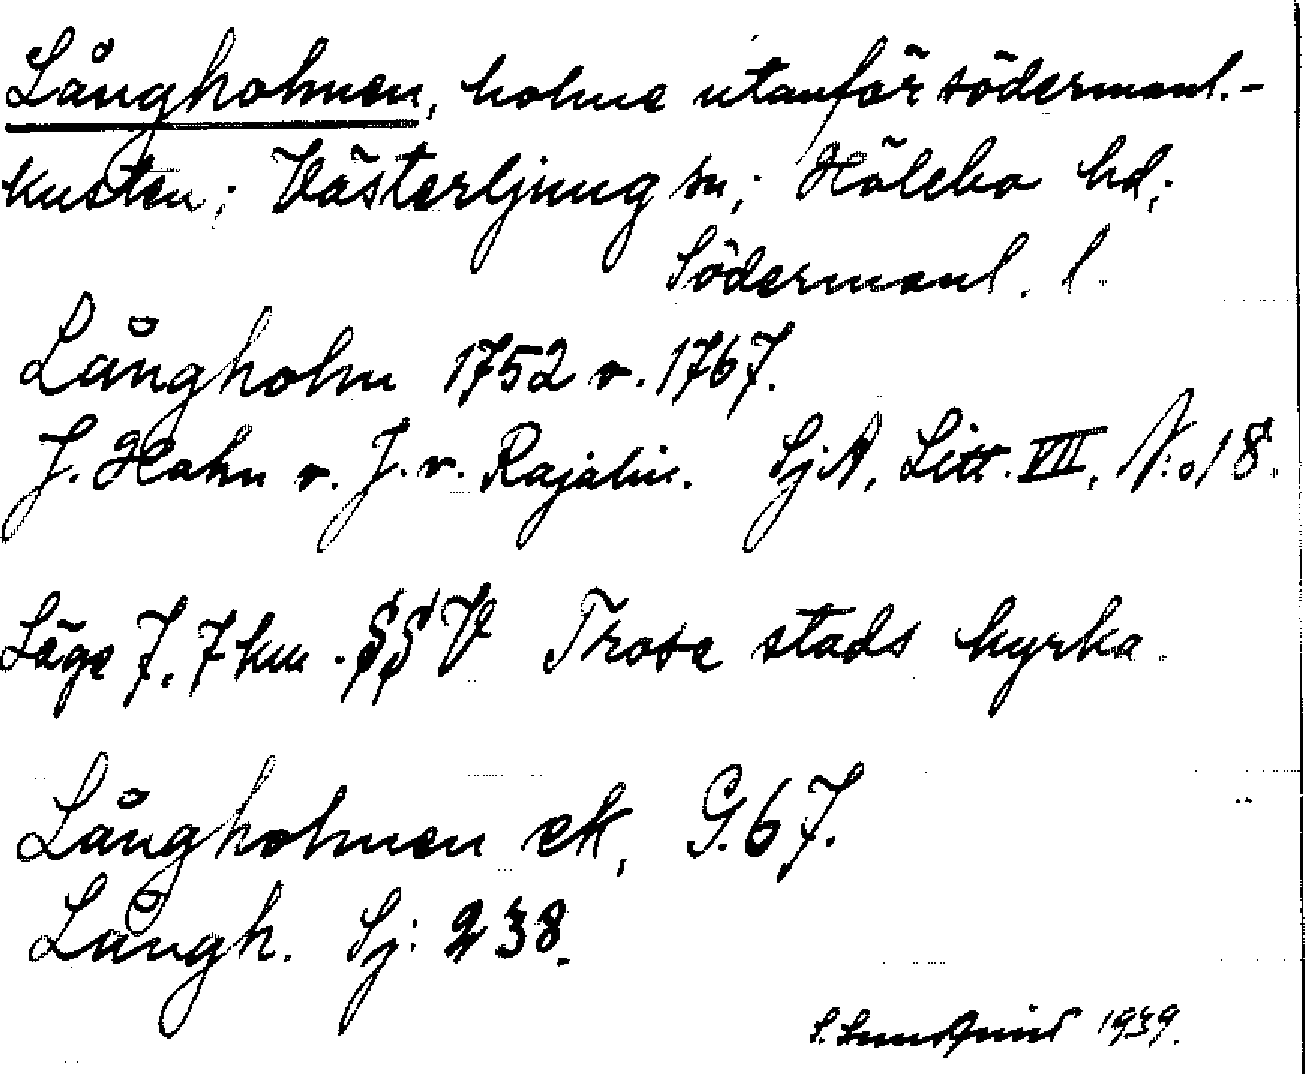 Långholmen, holme utanför södermanl.-
kusten; Västerljung sn; Hölebo hd;
Södermanl. l.
Långholm 1752 v. 1767.
J. Hahn v. J. v. Rajalin. Sj.A, Litt. VII, N:o 18.
Läge 7,7 km. SSV Trosa stads kyrka.
Långholmen ek, G.67.
Långh. Sj: 238.
S. 1939.